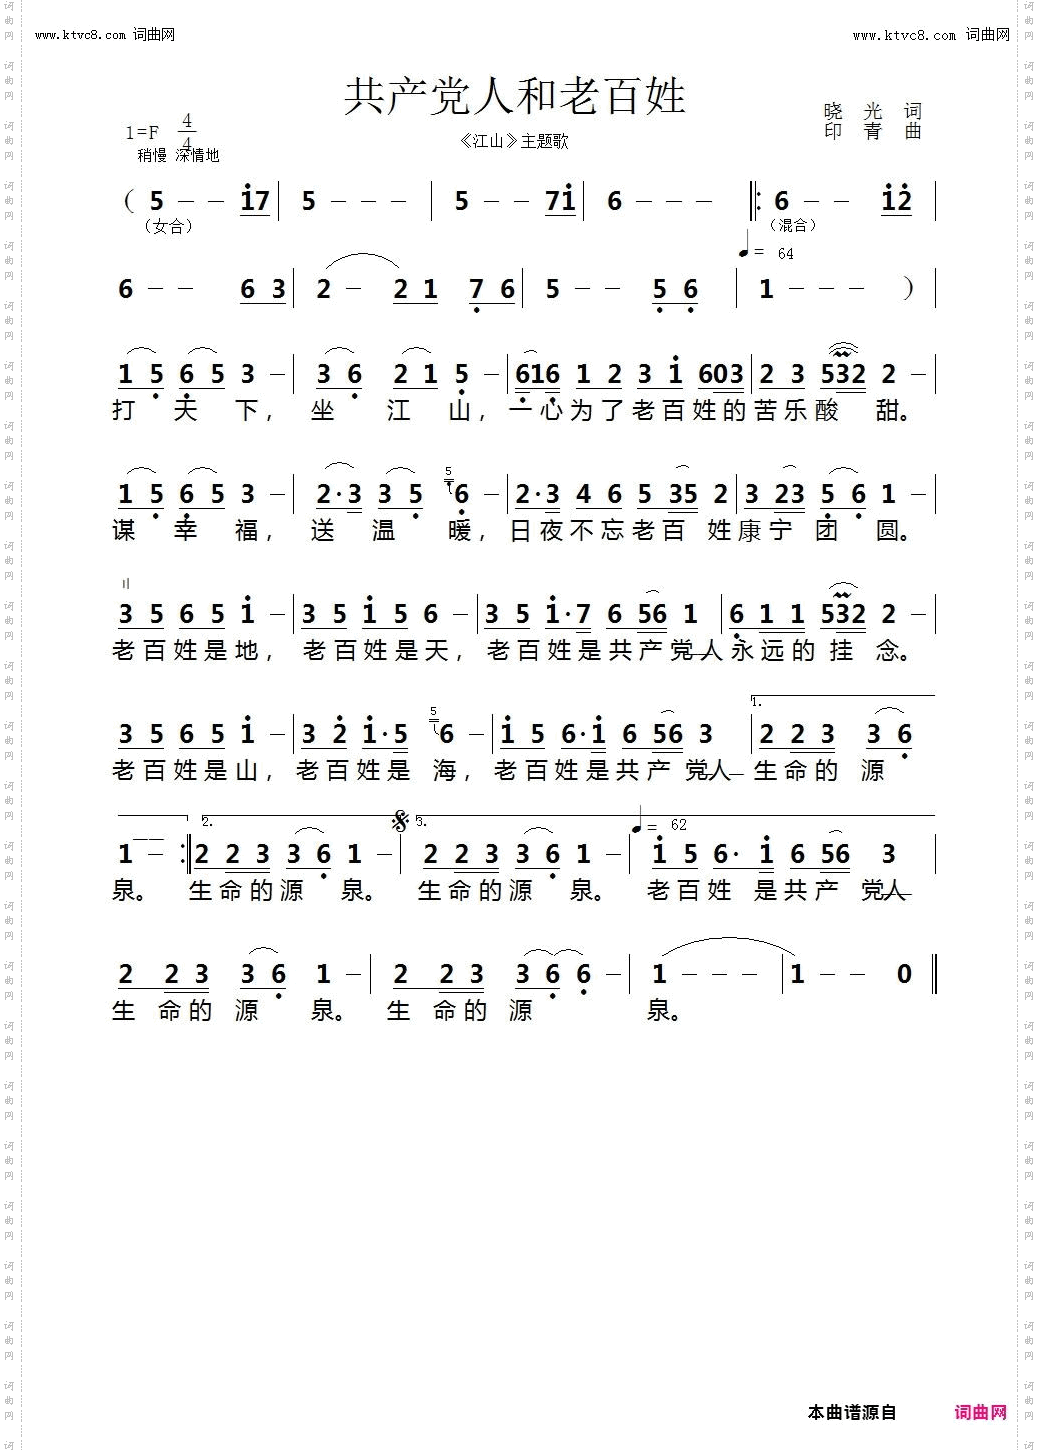 www.ktvc8.com 词曲网 www.ktvc8.com 词曲网
共产党人和老百姓
晓 光 词
1=F 4/4 《江山》主题歌 印 青 曲
稍慢 深情地
( 5 - - i7 | 5 - - - | 5 - - 7i | 6 - - - |: 6 - - i2̇ |
(女合) (混合)
♩= 64
6 - - 6 3 | 2 - 2 1 7̣ 6 | 5 - - 5̣ 6̣ | 1 - - - ) |
1 5̣ 6̣ 5 3 - | 3 6̣ 2 1 5̣ - | 6̣16̣ 1 2 3 i 603 | 2 3 532 2 - |
打 天 下, 坐 江 山, 一心为了老百姓的苦乐酸 甜。
1 5̣ 6̣ 5 3 - | 2·3 3 5̣ 5 6̣ - | 2·3 4 6 5 35 2 | 3 23 5̣ 6̣ 1 - |
谋 幸 福, 送 温 暖, 日夜不忘老百 姓康宁 团 圆。
3 5 6 5 i - | 3 5 i 5 6 - | 3 5 i·7 6 56 1 | 6̣ 1 1 532 2 - |
老百姓是地, 老百姓是天, 老百姓是共产党人永远的挂 念。
1.
3 5 6 5 i - | 3 2̇ i·5 5 6 - | i 5 6·i 6 56 3 | 2 2 3 3 6̣
老百姓是山, 老百姓是 海, 老百姓是共产 党人 生命的 源
2. 𝄋 3. ♩= 62
1 - :| 2 2 3 3 6̣ 1 - | 2 2 3 3 6̣ 1 - | i 5 6· i 6 56 3 |
泉。 生命的源 泉。 生命的源 泉。 老百姓 是共产 党人
2 2 3 3 6̣ 1 - | 2 2 3 3 6̣ 6̣ - | 1 - - - | 1 - 0 ‖
生 命的 源 泉。 生 命的 源 泉。
本曲谱源自 词曲网